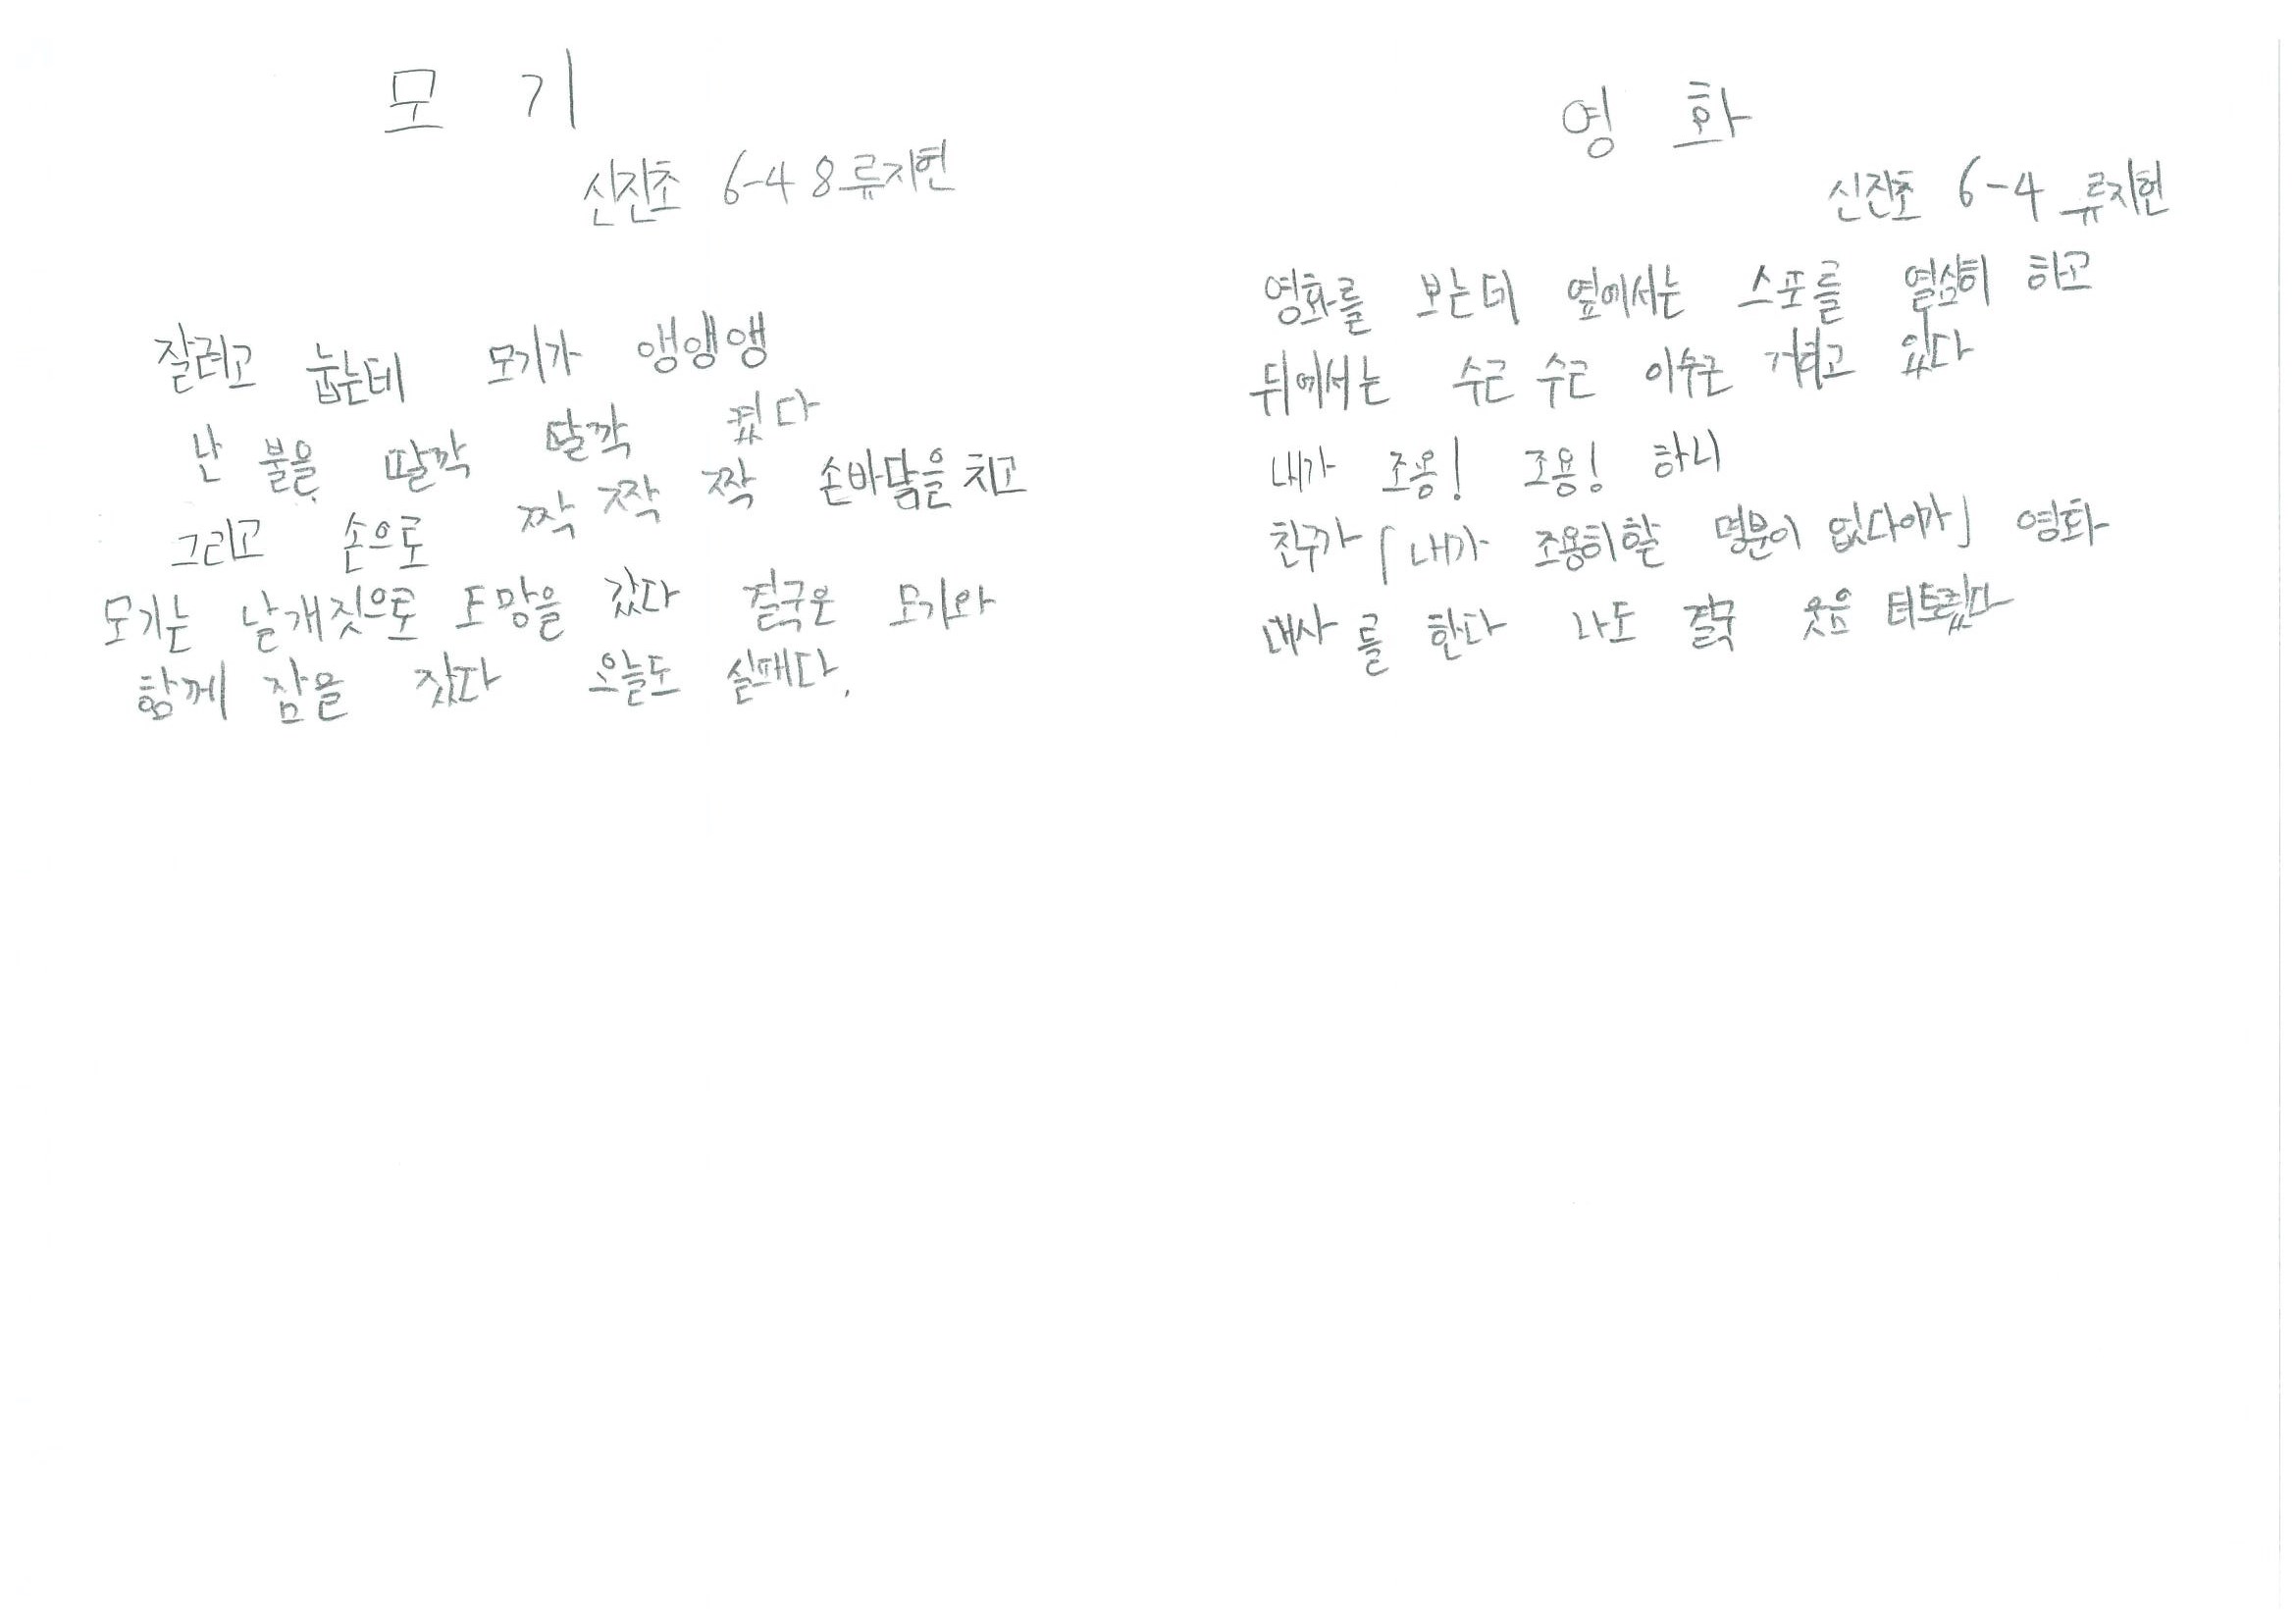 모기
신진초 6-4 8 류지헌
잘려고 눕는데 모기가 앵앵앵
난 불을 딸깍 딸깍 켰다
그리고 손으로 짝 짝 짝 손바닥을 치고
모기는 날개짓으로 도망을 갔다 결국은 모기와
함께 잠을 잤다 오늘도 실패다.
영화
신진초 6-4 류지헌
영화를 보는데 옆에서는 스포를 열심히 하고
뒤에서는 수근 수근 이수근 거리고 있다
내가 조용! 조용! 하니
친구가 「내가 조용히할 명분이 없다아가」 영화
대사를 한다 나도 결국 웃음 터트렸다